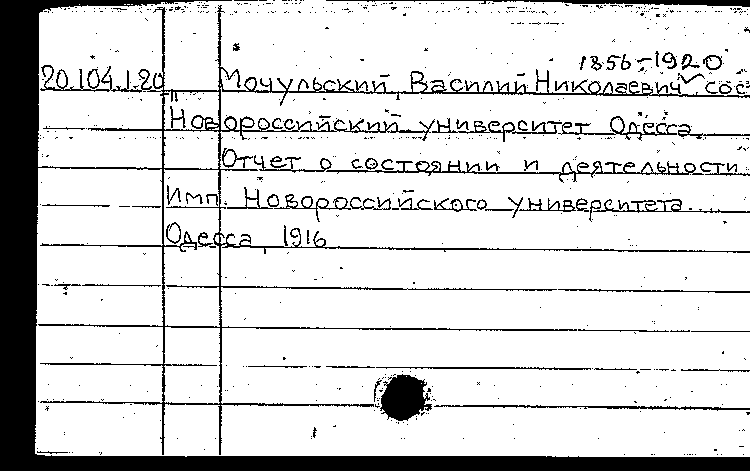 1856-1920
20.104.1.20 Мочульский, Василий Николаевич сос
Новороссийский университет Одесса
Отчет о состоянии и деятельности
Имп. Новороссийского университета...
Одесса, 1916